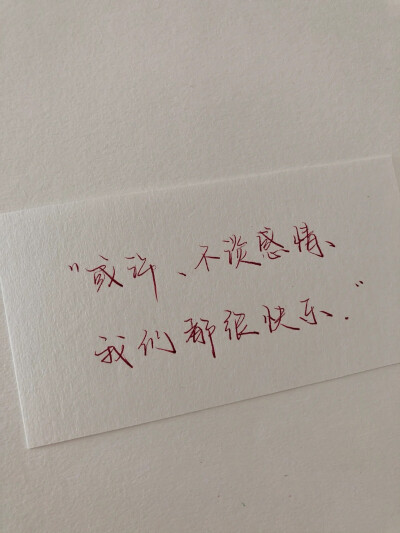 "或许、不谈感情、
我们都很快乐."